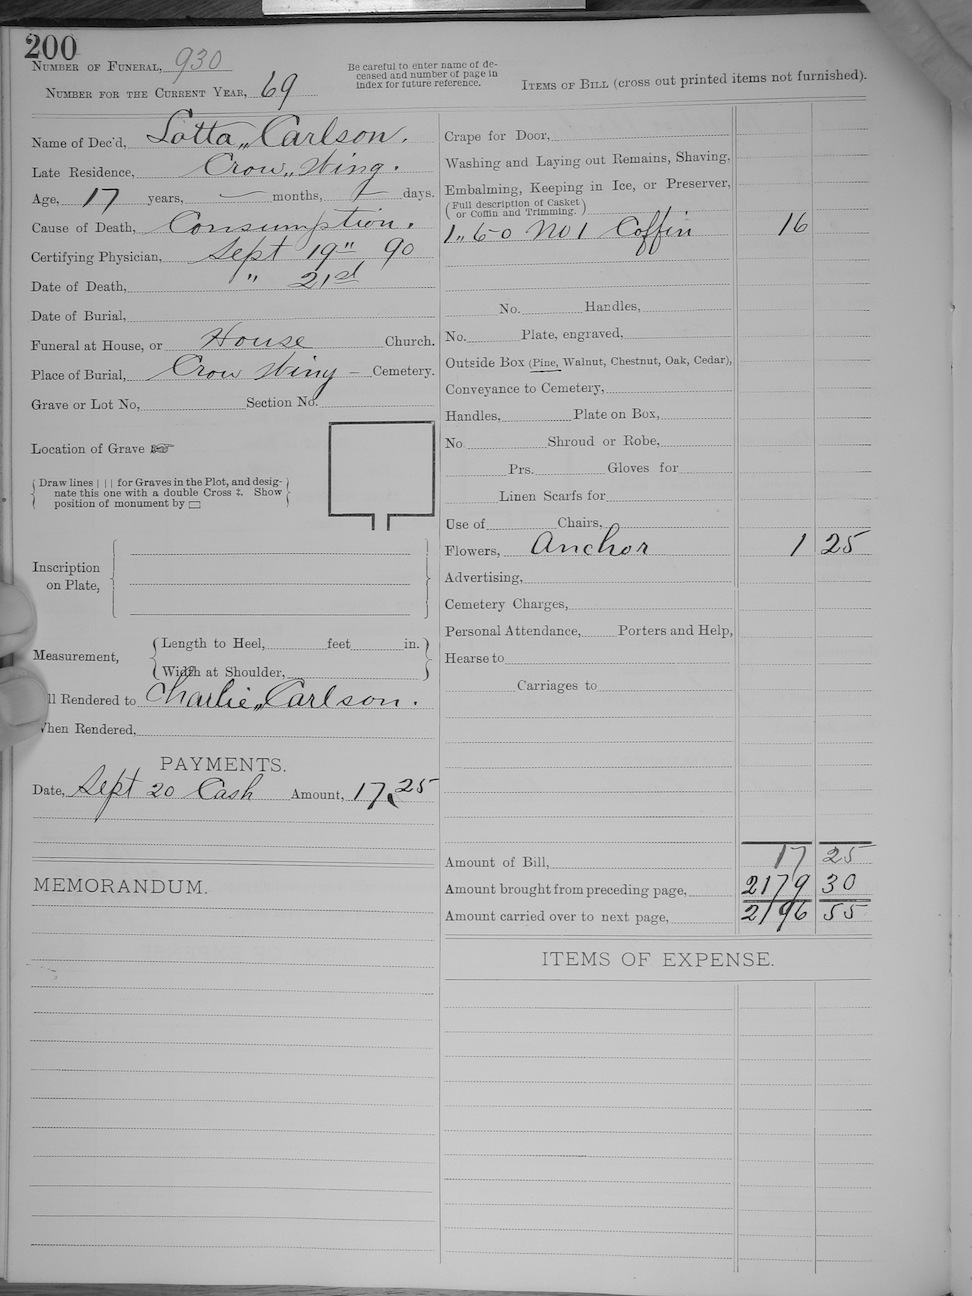 200
NUMBER OF FUNERAL, 930
NUMBER FOR THE CURRENT YEAR, 69
Be careful to enter name of de-
ceased and number of page in
index for future reference.
ITEMS OF BILL (cross out printed items not furnished).
Name of Dec'd, Lotta,, Carlson.
Late Residence, Crow,, Wing.
Age, 17 years, — months, — days.
Cause of Death, Consumption.
Certifying Physician, Sept 19" 90
Date of Death, " 21st
Date of Burial,
Funeral at House, or House Church.
Place of Burial, Crow Wing — Cemetery.
Grave or Lot No, Section No.
Location of Grave ☞
Draw lines | | | for Graves in the Plot, and desig-
nate this one with a double Cross ‡. Show
position of monument by ▭
Inscription
on Plate,
Measurement,
Length to Heel, feet in.
Width at Shoulder,
ll Rendered to Charlie,, Carlson.
When Rendered,
PAYMENTS.
Date, Sept 20 Cash Amount, 17.25
MEMORANDUM.
Crape for Door,
Washing and Laying out Remains, Shaving,
Embalming, Keeping in Ice, or Preserver,
(Full description of Casket
or Coffin and Trimming.)
1,, 6-0 No 1 Coffin 16
No. Handles,
No. Plate, engraved,
Outside Box (Pine, Walnut, Chestnut, Oak, Cedar),
Conveyance to Cemetery,
Handles, Plate on Box,
No. Shroud or Robe,
Prs. Gloves for
Linen Scarfs for
Use of Chairs,
Flowers, Anchor 1 25
Advertising,
Cemetery Charges,
Personal Attendance, Porters and Help,
Hearse to
Carriages to
Amount of Bill, 17 25
Amount brought from preceding page, 2179 30
Amount carried over to next page, 2196 55
ITEMS OF EXPENSE.